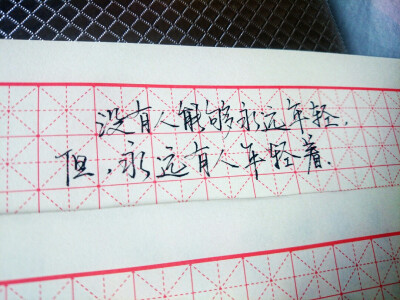 没有人能够永远年轻，
但，永远有人年轻着.